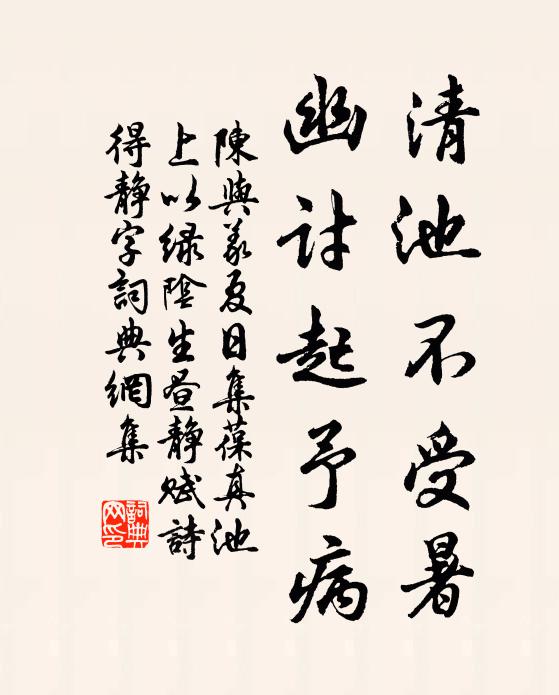 清池不受暑
幽討起予病
陳與義夏日集葆真池
上以緑陰生昼靜賦詩
得靜字詞典網集
詞典
网印